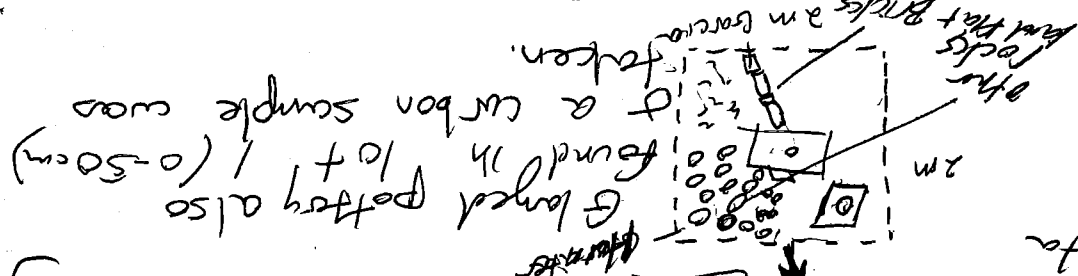 Glazed pottery also
found in lot 1 (0-50cm)
& a carbon sample was
taken.
2m
2m
other
rocks
and flat Bricks